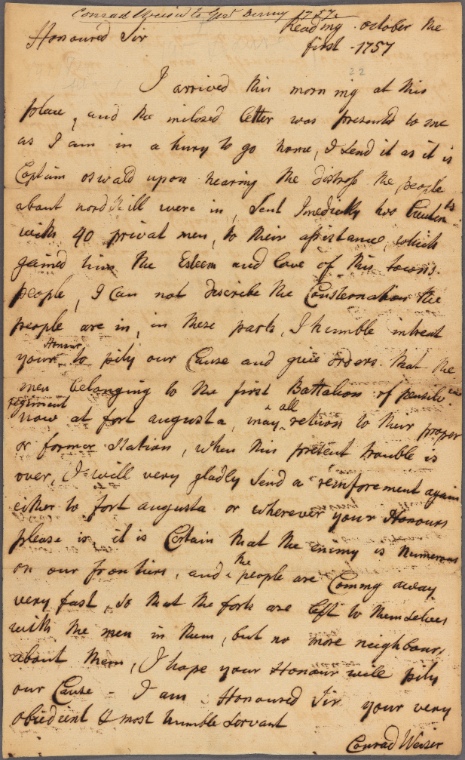 Conrad Weiser to Gov. Denny 1757.
Reading october the
first - 1757
Honoured Sir
I arrived this morning at this
place, and the inclosed letter was presented to me
as I am in a hury to go home, I send it as it is
Captain oswald upon hearing the distress the people
about nordkill were in, sent Imedietly two Lieuten.ts
with 40 privat men, to their assistance, which
gained him the Esteem and love of this town's
people, I Can not discribe the Consternation the
people are in, in these parts, I humble intreat
your Honour to pity our Cause and give orders that the
men belonging to the first Battalion of pensilv
regiment
now at fort augusta, may all return to their proper
or former Station, when this present trouble is
over, I will very gladly send a reinforcement again
either to fort augusta or wherever your Honours
please is, it is Certain that the enimy is numerous
on our frontiers, and the people are Comming away
very fast, so that the forts are left to themselves
with the men in them, but no more neighbours
about them, I hope your Honour will pity
our Cause - I am Honoured Sir your very
obedient & most humble Servant
Conrad Weiser